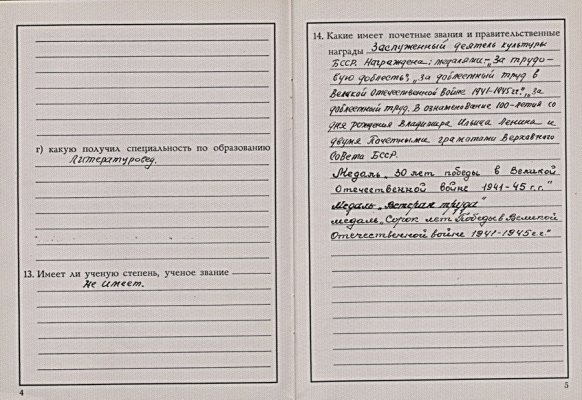 г) какую получил специальность по образованию
Литературовед.
13. Имеет ли ученую степень, ученое звание
Не имеет.
4
14. Какие имеет почетные звания и правительственные
награды Заслуженный деятель культуры
БССР. Награждена: медалями: „За трудо-
вую доблесть", „За доблестный труд в
Великой Отечественной войне 1941-1945 гг.", „За
доблестный труд. В ознаменование 100-летия со
дня рождения Владимира Ильича Ленина и
двумя Почетными грамотами Верховного
Совета БССР.
Медаль „30 лет победы в Великой
Отечественной войне 1941-45 г.г."
Медаль „Ветеран труда"
медаль „Сорок лет Победы в Великой
Отечественной войне 1941-1945 г.г."
5